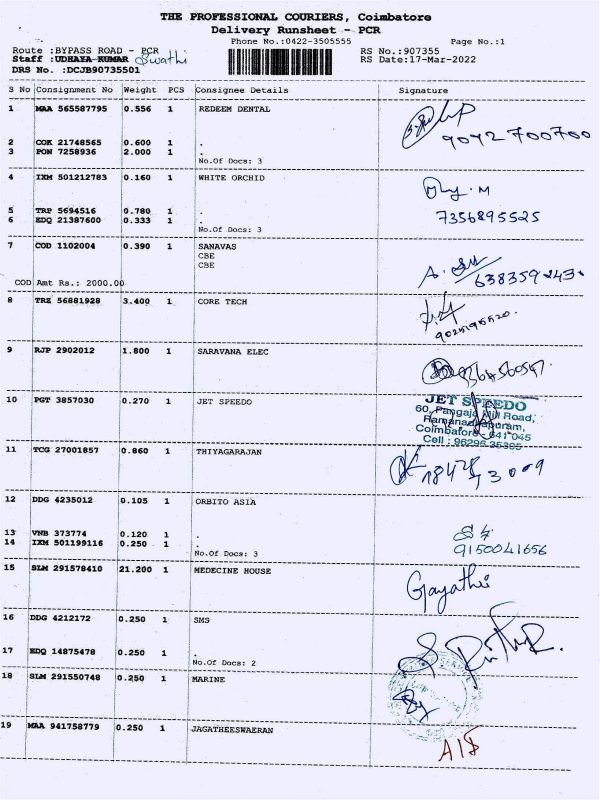 THE PROFESSIONAL COURIERS, Coimbatore
Delivery Runsheet - PCR
Phone No.:0422-3505555 Page No.:1
Route :BYPASS ROAD - PCR RS No.:907355
Staff :UDHAYA KUMAR Swathi RS Date:17-Mar-2022
DRS No. :DCJB90735501
S No Consignment No Weight PCS Consignee Details Signature
1 MAA 565587795 0.556 1 REDEEM DENTAL
9042 700700
2 COK 21748565 0.600 1 .
3 PON 7258936 2.000 1 .
No.Of Docs: 3
4 IXM 501212783 0.160 1 WHITE ORCHID
7356895525
5 TRP 5694516 0.780 1 .
6 EDQ 21387600 0.333 1 .
No.Of Docs: 3
7 COD 1102004 0.390 1 SANAVAS
CBE
CBE
COD Amt Rs.: 2000.00
8 TRZ 56881928 3.400 1 CORE TECH
9 RJP 2902012 1.800 1 SARAVANA ELEC
10 PGT 3857030 0.270 1 JET SPEEDO
JET SPEEDO
60, Pangaja Mill Road,
Ramanadhapuram,
Coimbatore - 641 045
Cell : 96296 35305
11 TCG 27001857 0.860 1 THIYAGARAJAN
12 DDG 4235012 0.105 1 ORBITO ASIA
13 VNB 373774 0.120 1 .
14 IXM 501199116 0.250 1 .
9150041656
No.Of Docs: 3
15 SLM 291578410 21.200 1 MEDECINE HOUSE
Gayathri
16 DDG 4212172 0.250 1 SMS
17 EDQ 14875478 0.250 1 .
No.Of Docs: 2
18 SLM 291550748 0.250 1 MARINE
19 MAA 941758779 0.250 1 JAGATHEESWAERAN